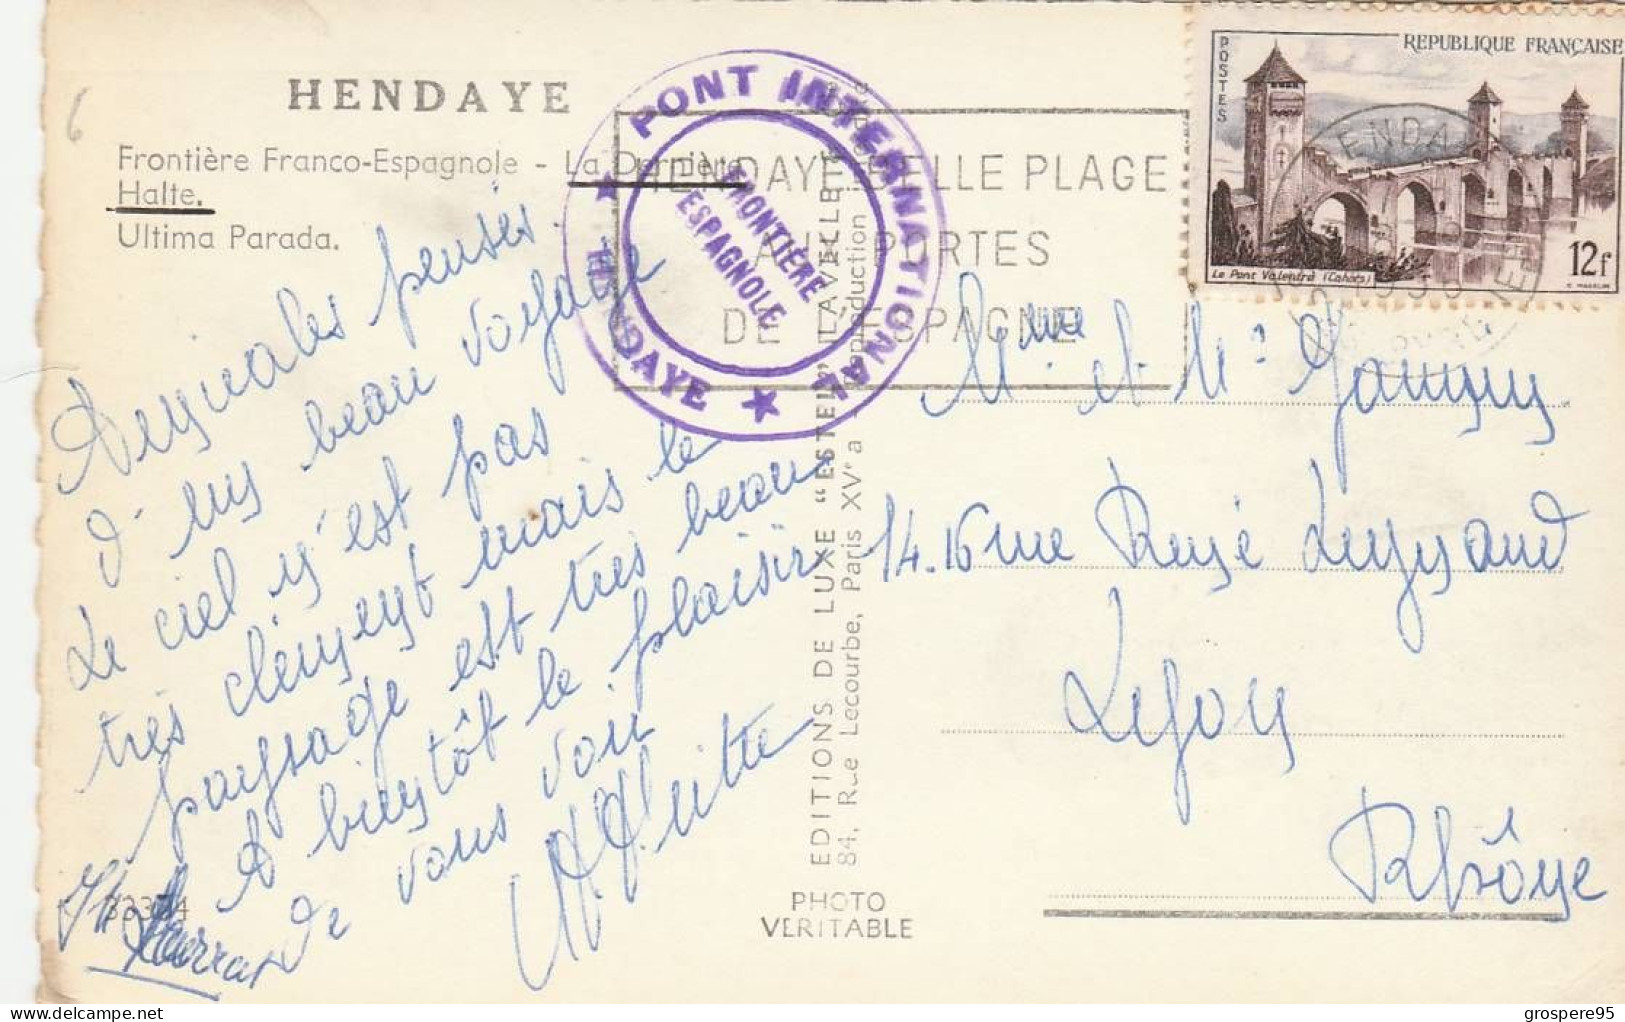 HENDAYE
Frontière Franco-Espagnole - La Dernière
Halte.
Ultima Parada.
6
PONT INTERNATIONAL
★ HENDAYE ★
FRONTIÈRE
ESPAGNOLE
HENDAYE BELLE PLAGE
AUX PORTES
DE L'ESPAGNE
POSTES
REPUBLIQUE FRANÇAISE
Le Pont Valentré (Cahors)
12f
Amicales pensées
d'un beau voyage
Le ciel n'est pas
très clément mais le
paysage est très beau
A bientôt le plaisir
de vous voir
33334
EDITIONS DE LUXE "ESTEL" LAVELLE
84, Rue Lecourbe, Paris XVe
Reproduction
PHOTO
VERITABLE
Mme et Mr
14.16 rue René Leynaud
Lyon
Rhône
grospere95